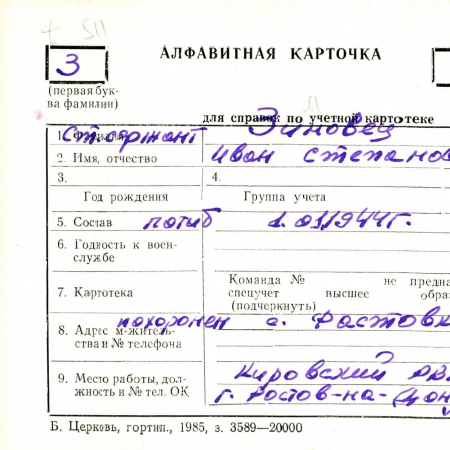 511
З
АЛФАВИТНАЯ КАРТОЧКА
(первая бук-
ва фамилии)
для справок по учетной картотеке
1. Фамилия Ст. сержант Зиновец
2. Имя, отчество Иван Степанов
3. 4.
Год рождения Группа учета
5. Состав погиб 1.01.1944г.
6. Годность к воен-
службе
7. Картотека
Команда № не предна
спецучет высшее обра
(подчеркнуть)
8. Адрес м-житель-
ства и № телефона
похоронен с.
9. Место работы, дол-
жность и № тел. ОК
Кировский РВ
г. Ростов-на-Дон
Б. Церковь, гортип., 1985, з. 3589—20000